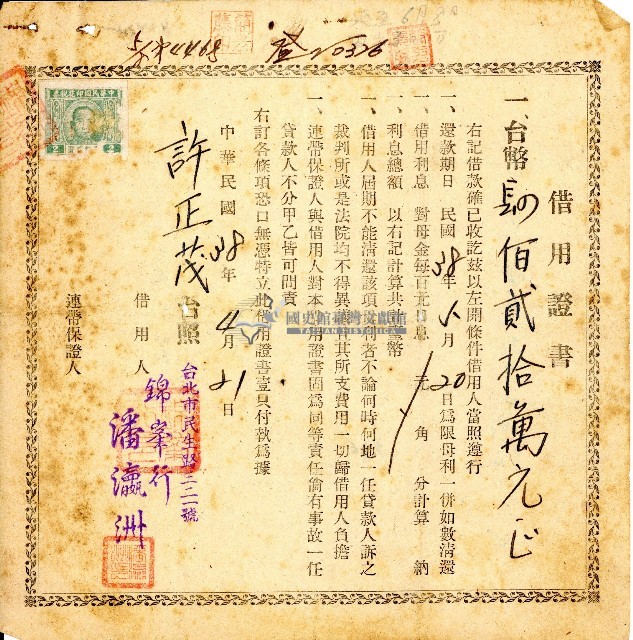 台中4468
登20326
借用證書
一、台幣 肆佰貳拾萬元正
右記借款確已收訖玆以左開條件借用人當照遵行
一、還款期日 民國38年 月20日爲限母利一併如數清還
一、借用利息 對母金每百元日息 元 角 分計算 納
一、利息總額 以右記計算共計臺幣
一、借用人屆期不能清還該項 利者不論何時何地一任貸款人訴之
裁判所或是法院均不得異議 其所支費用一切歸借用人負擔
一、連帶保證人與借用人對本 用證書固爲同等責任倘有事故一任
貸款人不分甲乙皆可問責
右訂各條項恐口無憑特立此借用證書壹具付執爲據
中華民國 38年 4月 21日
許正茂 台照
台北市民生路三二號
錦峯行
借用人 潘瀛洲
連帶保證人
中華民國印花稅票
國史館臺灣文獻館
TAIWAN HISTORICA